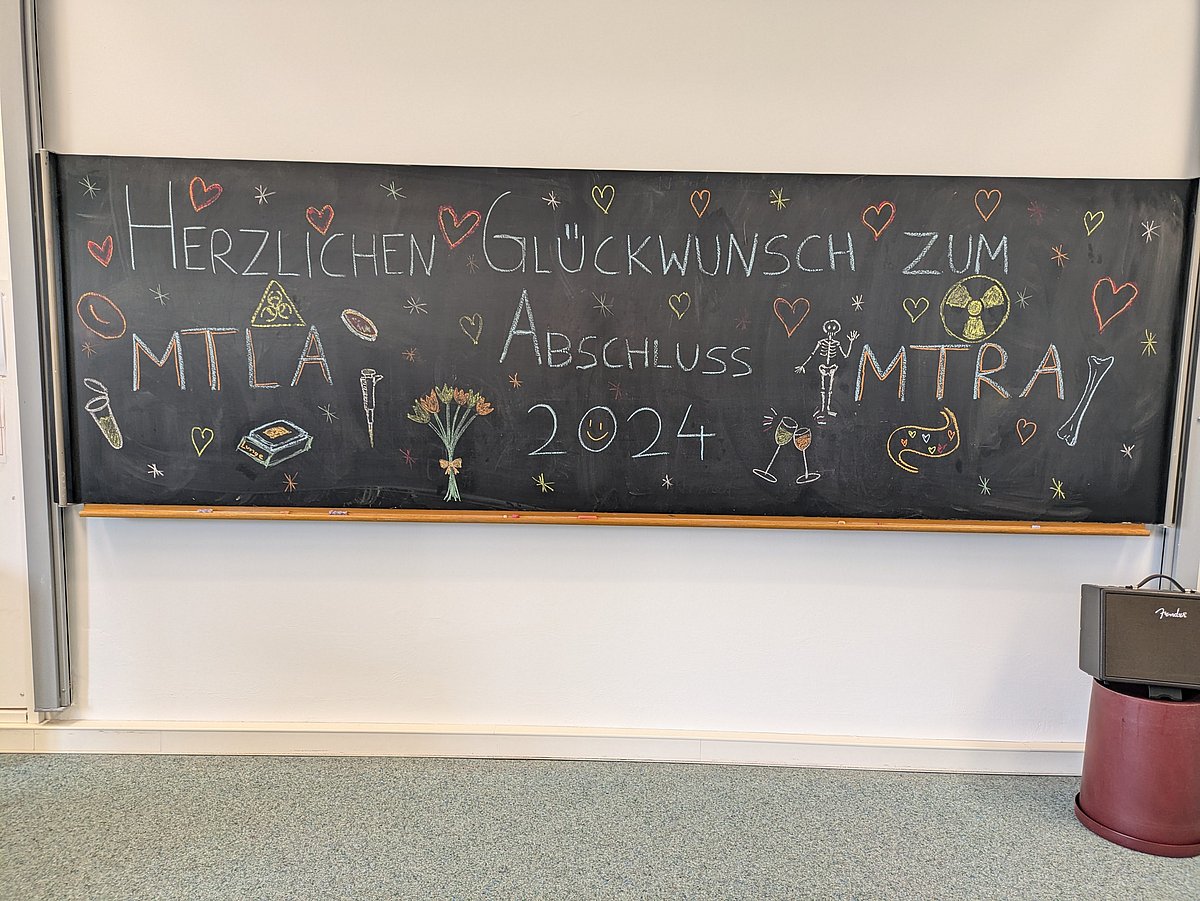 HERZLICHEN GLÜCKWUNSCH ZUM
MTLA ABSCHLUSS MTRA
2024
Lunge
Fender